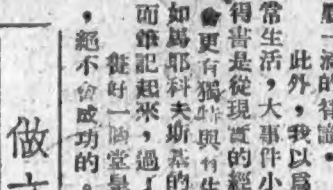 此外，我以爲
常生活，大事件小
得書是從現實的經
更有獨特與
如馬耶科夫斯基的
而筆記起來，過
從好一個堂
，絕不會成功的。
做